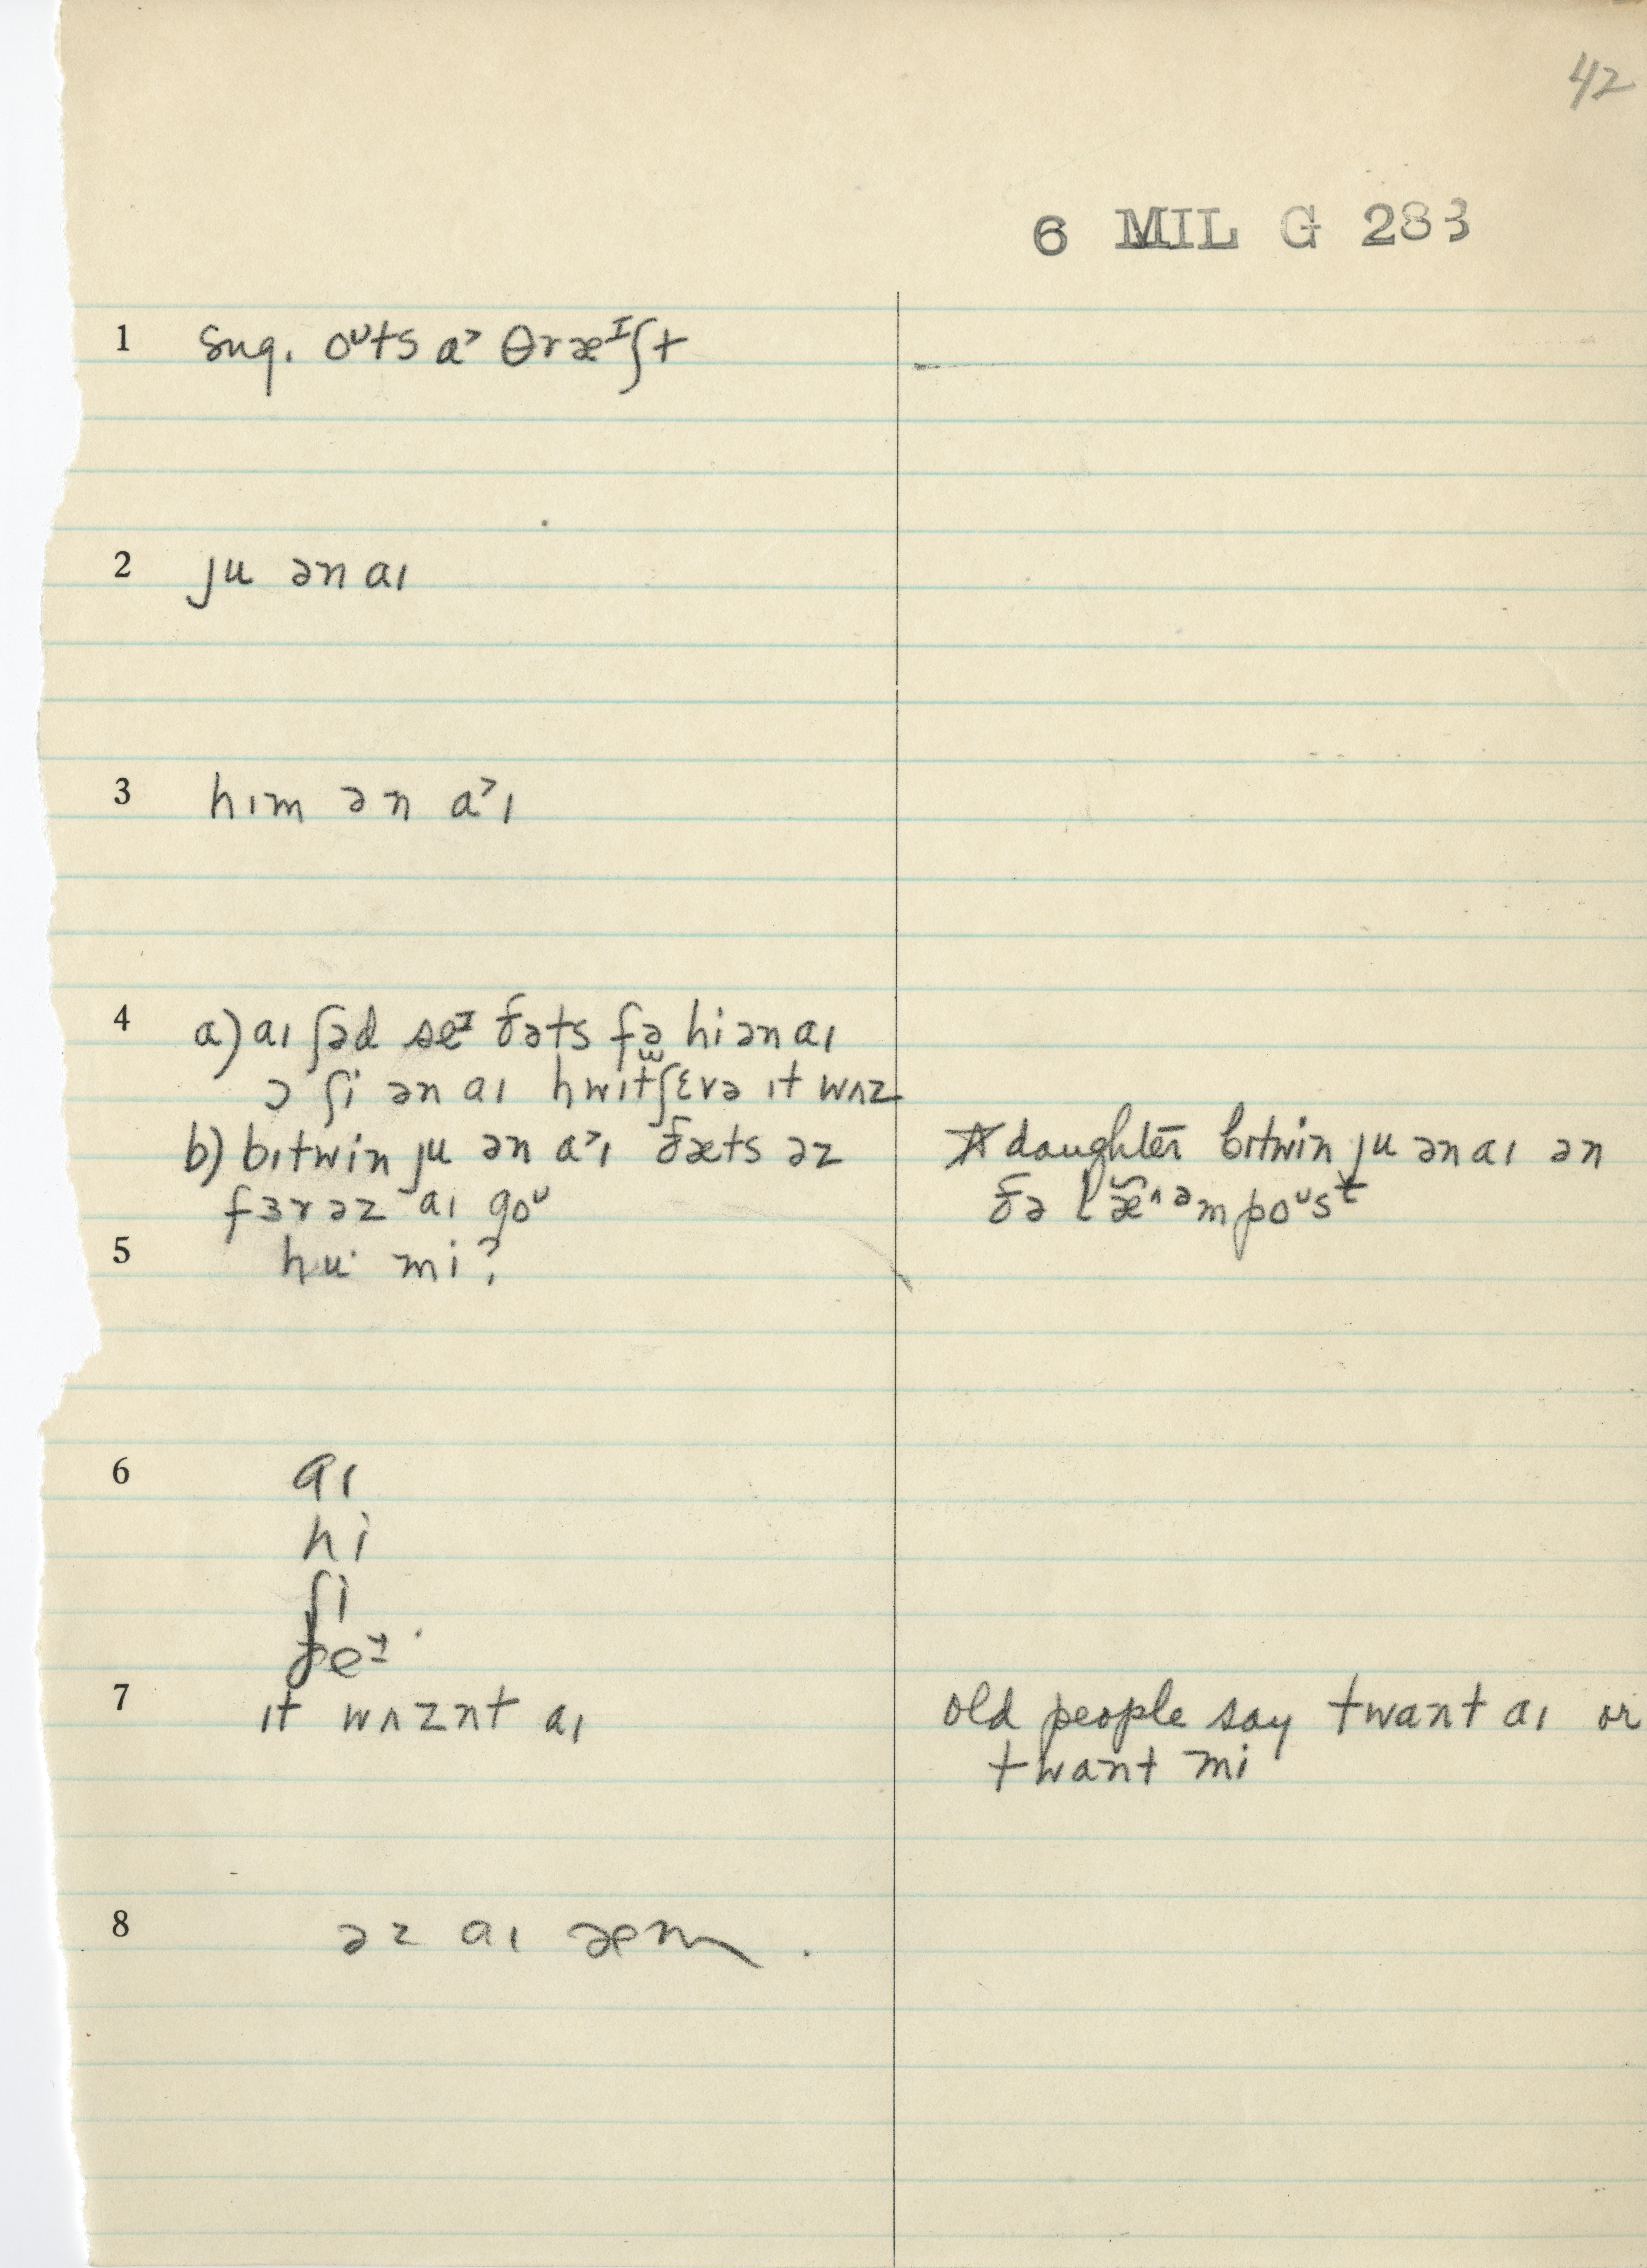 42
6 MIL G 283
1 sug. oᶷts a˃ θræᴵʃt
2 ju ən aɪ
3 hɪm ən a˃ɪ
4 a) aɪ ʃəd seᴵ ðəts fə hi ən aɪ
ɔ ʃi ən aɪ hwɪtʃɛvə ɪt wʌz
b) bɪtwin ju ən a˃ɪ ðæts əz
fɜrəz aɪ goᶷ
★ daughter bɪtwin ju ən aɪ ən
ðə læ̆^ᵊmpoᶷsᵗ
5 hu· mi?
6 aɪ
hi
ʃi
ðeᴵ
7 ɪt wʌznt aɪ
old people say twant aɪ or
twant mi
8 əz aɪ æm